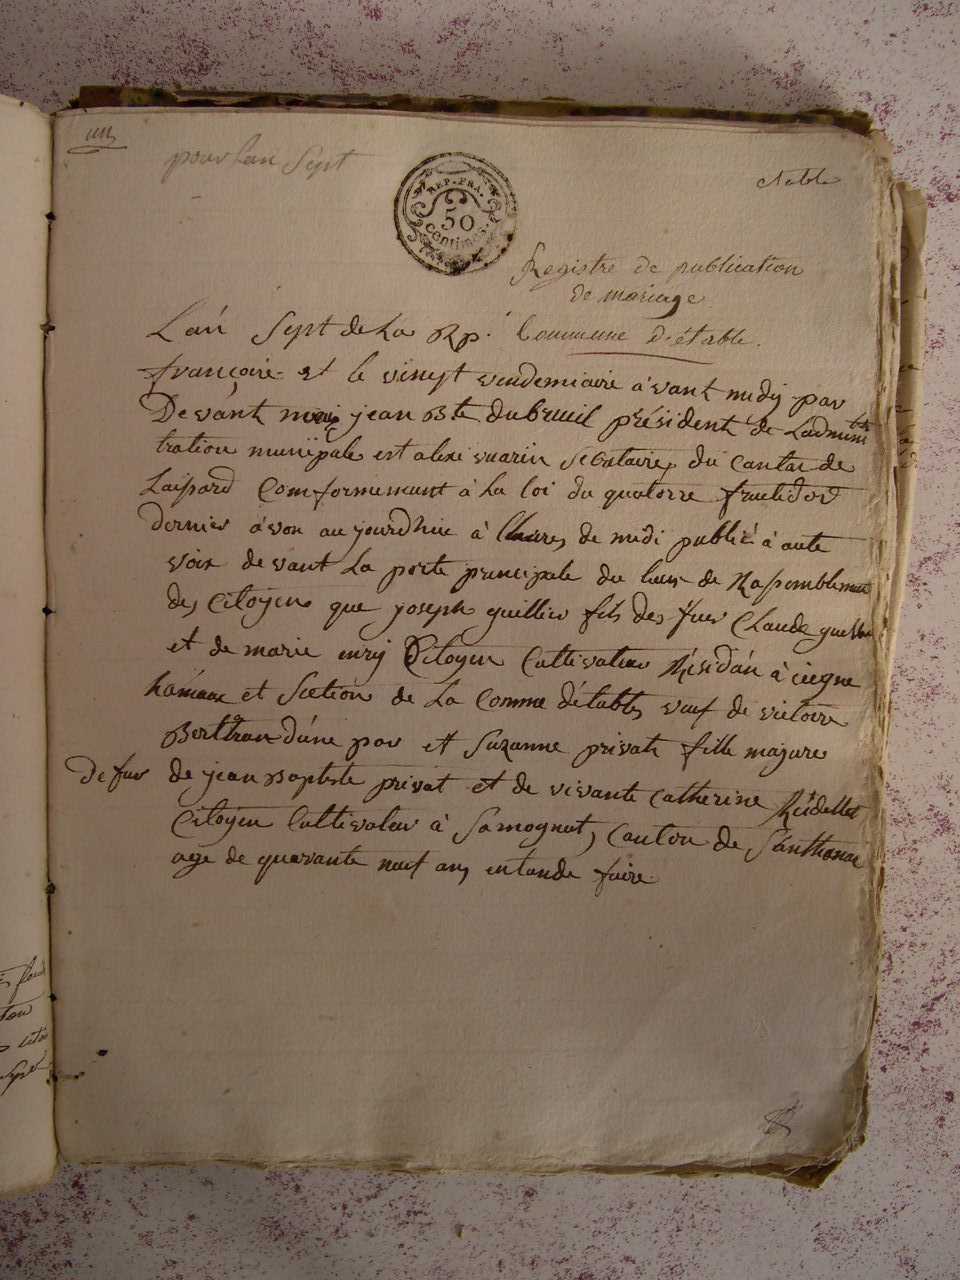 un
pour lan Sept
REP. FRA.
50
Centimes.
etable
Registre de publication
de mariage
Commune d'étable.
L'an Sept de La Rp.
françaice et le vingt vendemiaire avant midy par
Devant moi jean Bte dubreuil président de Ladminis
tration municipale est alexi vuarin Secrataire du Canton de
Laipard Comformemant à La loi du quatorze fructidor
dernier avon aujourdhui à lheure de midi publié à aute
voix devant La porte principale du lieux de Rasemblement
des Citoyens que joseph guillier fils des feu Claude guillier
et de marie enry Citoyen Cultivateur Résidan à ciegne
hameau et Section de La Comme détables veuf de victoire
Berthran d'une par et Suzanne privat fille majure
De feu de jean Baptiste privat et de vivante Catherine Rudellet
Citoyen Cultivateur à Samognat, Canton de Santhonax
age de quarante neuf ans entande faire